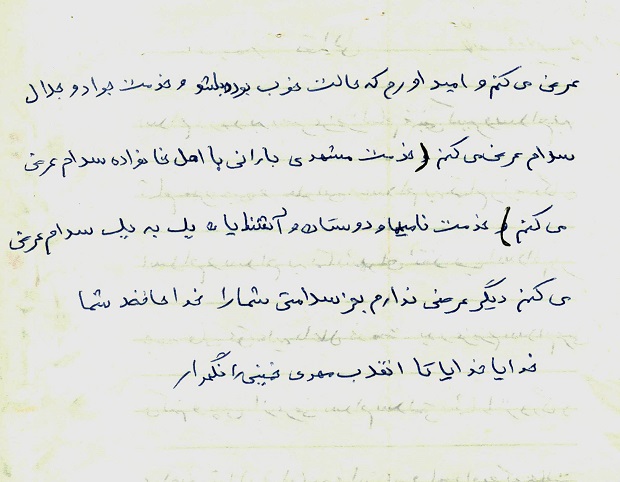 عرض می کنم و امید اورم که حالت خوب بوده باشد و خدمت جواد و جلال
سلام عرض می کنم (خدمت مشهدی بارانی با اهل خانواده سلام عرض
می کنم) و خدمت فامیلها و دوستان و آشنایان یک به یک سلام عرض
می کنم دیگر عرضی ندارم بجز سلامتی شما را خدا حافظ شما
خدایا خدایا تا انقلاب مهدی خمینی را نگهدار